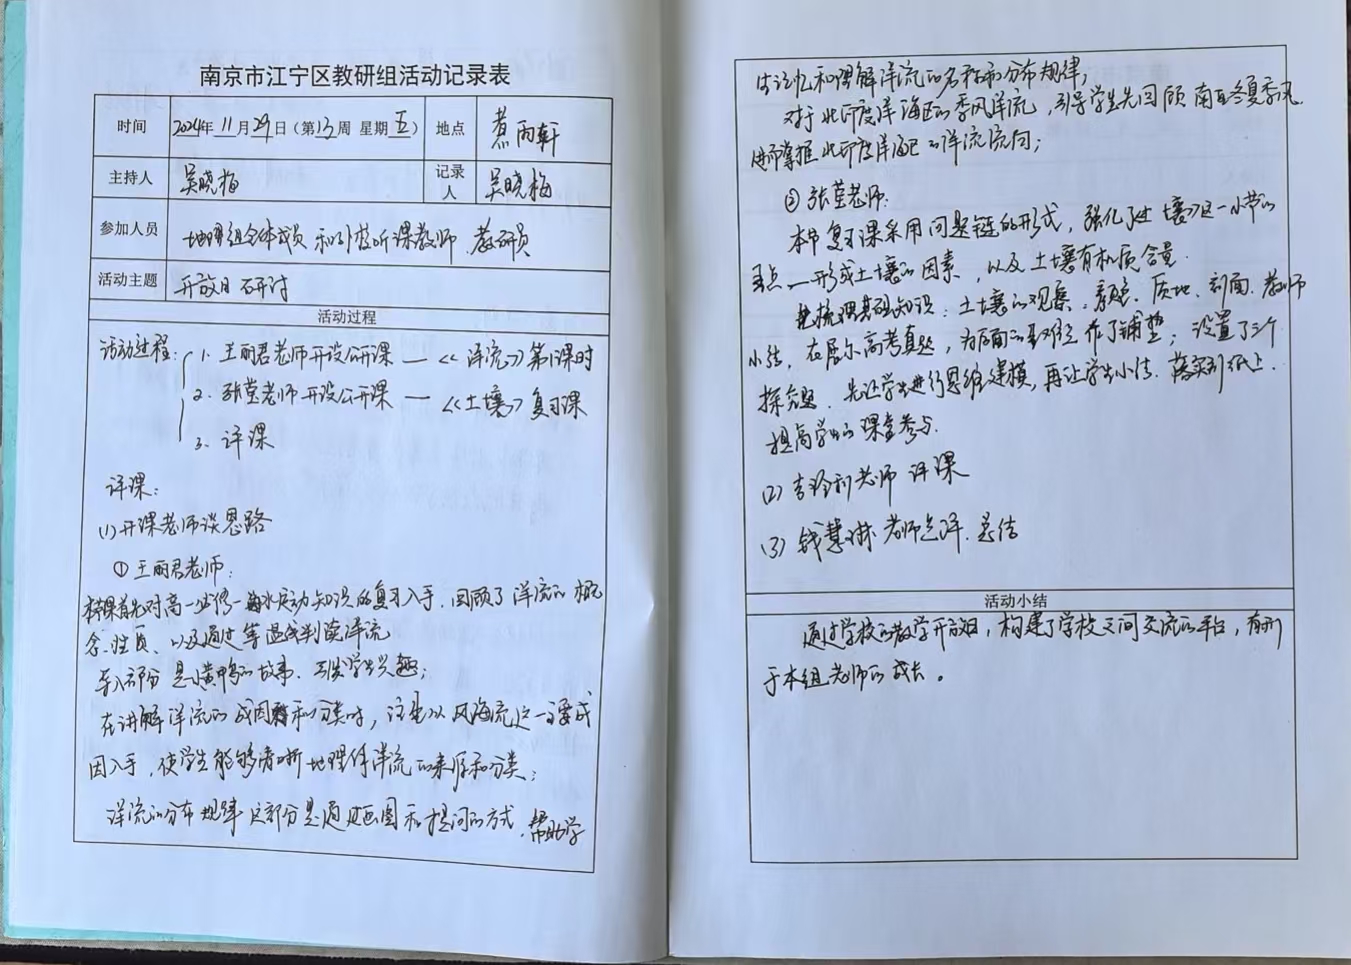 南京市江宁区教研组活动记录表
时间 2024年11月29日（第13周 星期五） 地点 煮雨轩
主持人 吴晓梅 记录人 吴晓梅
参加人员 地理组全体成员和外校听课教师 教研员
活动主题 开放日研讨
活动过程
活动过程: 1. 王丽君老师开设公开课 — 《洋流》第1课时
2. 张莹老师开设公开课 — 《土壤》复习课
3. 评课
评课:
(1) 开课老师谈思路
① 王丽君老师:
本节课首先对高一必修一海水运动知识的复习入手，回顾了洋流的概
念、性质、以及通过等温线判读洋流
导入部分是小黄鸭的故事，引发学生兴趣;
在讲解洋流的成因和分类时，注重以风海流这一主要成
因入手，使学生能够清晰地理解洋流的来源和分类;
洋流的分布规律这部分是通过画图和提问的方式，帮助学
生记忆和理解洋流的名称和分布规律;
对于北印度洋海区的季风洋流，引导学生先回顾南亚冬夏季风，
进而掌握北印度洋海区的洋流流向;
② 张莹老师:
本节复习课采用问题链的形式，强化了《土壤》这一小节的
重点—形成土壤的因素，以及土壤有机质含量.
先梳理基础知识: 土壤的观察、颜色、质地、剖面. 教师
小结，在展示高考真题，为后面的 作了铺垫; 设置了三个
探究题，先让学生进行思维建模，再让学生小结，落实到纸上.
提高学生的课堂参与.
(2) 老师评课
(3) 钱慧琳老师点评、总结
活动小结
通过学校的教学开放日，构建了学校之间交流的平台，有利
于本组老师的成长。